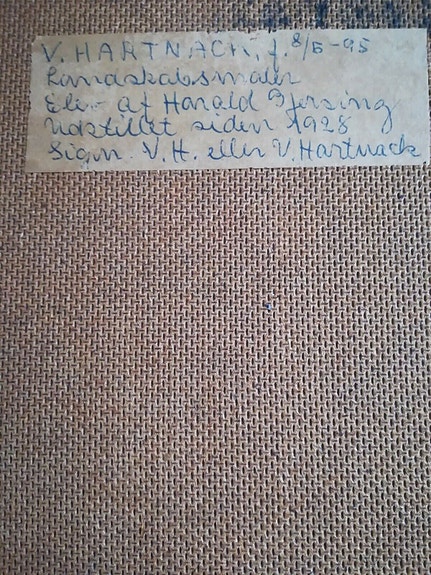 V. HARTNACK, f. 8/5-95
Landskabsmaler
Elev af Harald Giersing
Udstillet siden 1928
Sign. V.H. eller V. Hartnack